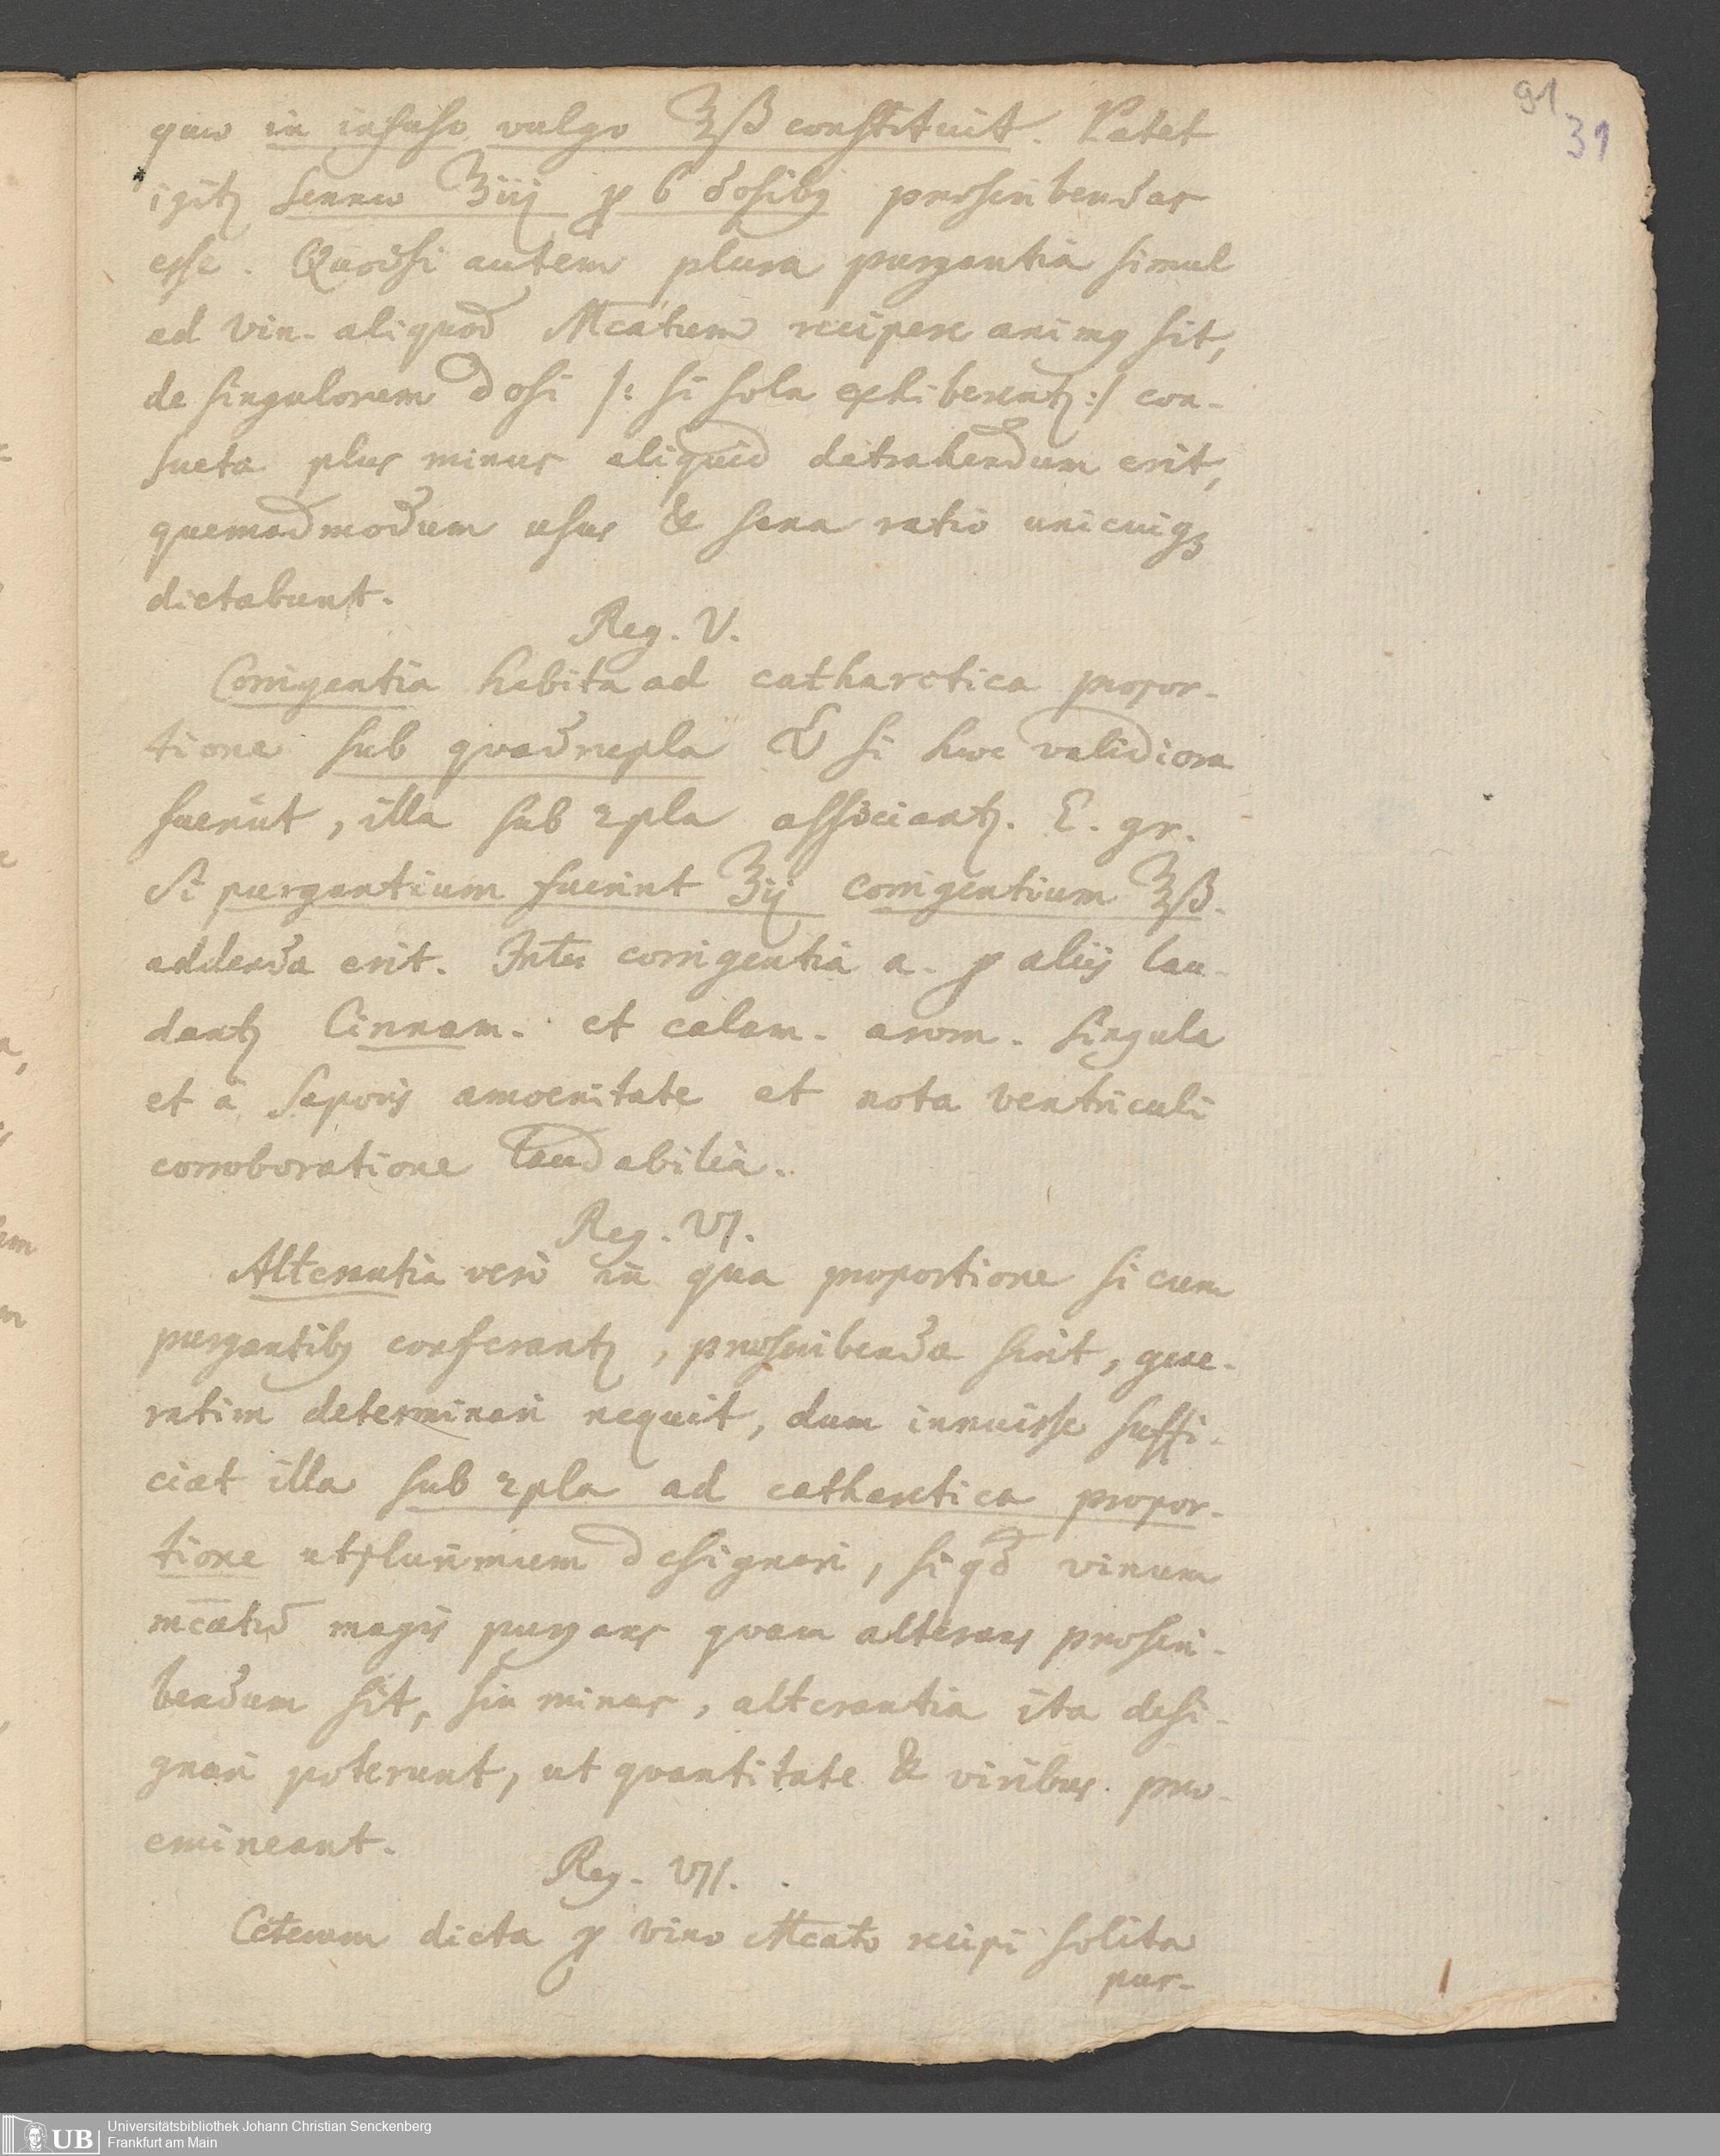 91
31
quæ in infuso vulgo ℥ß constituit. Patet
igitꝫ Sennæ ℥iij ꝑ 6 dosibꝫ præscribendas
esse. Quodsi autem plura purgantia simul
ad vin. aliquod Mcatum recipere animꝫ sit,
de singulorum dosi /: si sola exhiberentꝫ :/ con-
sueta plus minus aliquid detrahendum erit,
quemadmodum usus & sana ratio unicuiqꝫ
dictabunt.
Reg. V.
Corrigentia habita ad catharctica propor-
tione sub quadrupla & si hæc validiora
fuerint, illa sub 2pla associantꝫ. E. gr.
Si purgantium fuerint ℥ij corrigentium ℥ß.
addenda erit. Inter corrigentia a. ꝑ aliis lau-
dantꝫ Cinnam. et calam. arom. singula
et à Saporis amoenitate et nota ventriculi
corroboratione laudabilia.
Reg. VI.
Alterantia verò in qua proportione si cum
purgantibꝫ conferantꝫ, præscribenda sint, gene-
ratim determinari nequit, dum innuisse suffi-
ciat illa sub 2pla ad catharctica propor-
tione utplurimum designari, siqd vinum
mcatũ magis purgans quam alterans præscri-
bendum sit, sin minus, alterantia ita desi-
gnari poterunt, ut quantitate & viribus præ-
emineant.
Reg. VII.
Ceterum dicta ꝑ vino Mcato recipi solita
pur-
UB Universitätsbibliothek Johann Christian Senckenberg
Frankfurt am Main